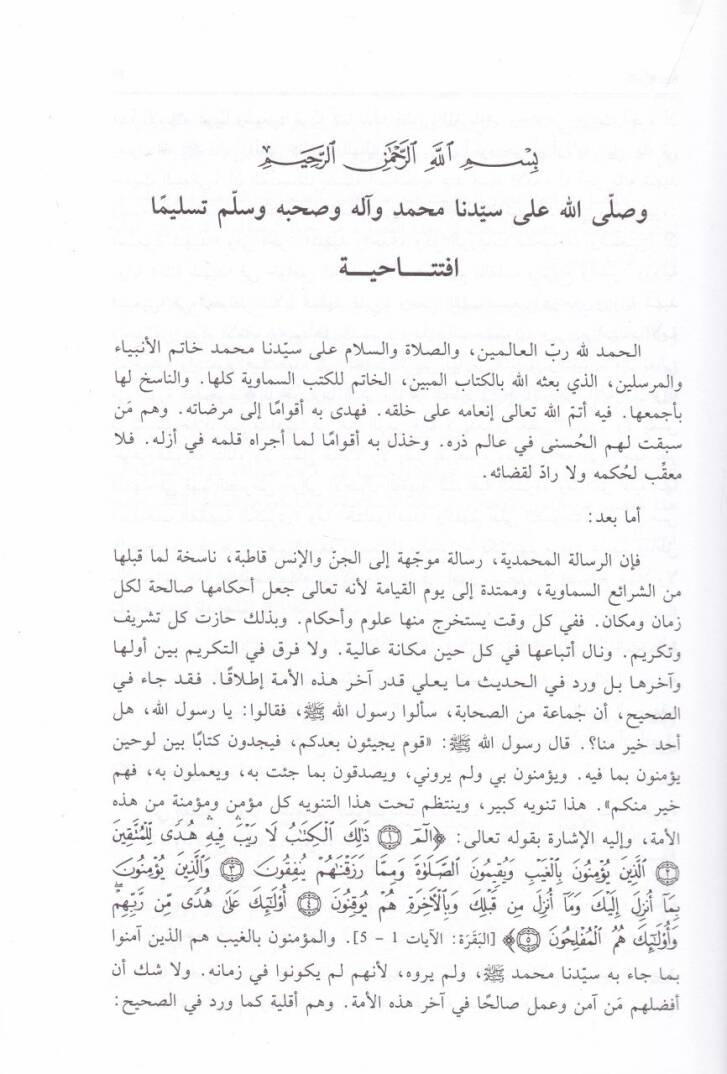 بِسْمِ اللَّهِ الرَّحْمَٰنِ الرَّحِيمِ
وصلّى الله على سيّدنا محمد وآله وصحبه وسلّم تسليمًا
افتتـاحيـة
الحمد لله ربّ العالمين، والصلاة والسلام على سيّدنا محمد خاتم الأنبياء
والمرسلين، الذي بعثه الله بالكتاب المبين، الخاتم للكتب السماوية كلها. والناسخ لها
بأجمعها. فيه أتمّ الله تعالى إنعامه على خلقه. فهدى به أقوامًا إلى مرضاته. وهم مَن
سبقت لهم الحُسنى في عالم ذره. وخذل به أقوامًا لما أجراه قلمه في أزله. فلا
معقّب لحُكمه ولا رادّ لقضائه.
أما بعد:
فإن الرسالة المحمدية، رسالة موجّهة إلى الجنّ والإنس قاطبة، ناسخة لما قبلها
من الشرائع السماوية، وممتدة إلى يوم القيامة لأنه تعالى جعل أحكامها صالحة لكل
زمان ومكان. ففي كل وقت يستخرج منها علوم وأحكام. وبذلك حازت كل تشريف
وتكريم. ونال أتباعها في كل حين مكانة عالية. ولا فرق في التكريم بين أولها
وآخرها بل ورد في الحديث ما يعلي قدر آخر هذه الأمة إطلاقًا. فقد جاء في
الصحيح، أن جماعة من الصحابة، سألوا رسول الله ﷺ، فقالوا: يا رسول الله، هل
أحد خير منا؟. قال رسول الله ﷺ: «قوم يجيئون بعدكم، فيجدون كتابًا بين لوحين
يؤمنون بما فيه. ويؤمنون بي ولم يروني، ويصدقون بما جئت به، ويعملون به، فهم
خير منكم». هذا تنويه كبير، وينتظم تحت هذا التنويه كل مؤمن ومؤمنة من هذه
الأمة، وإليه الإشارة بقوله تعالى: ﴿الٓمٓ ۝١ ذَٰلِكَ الْكِتَٰبُ لَا رَيْبَ ۛ فِيهِ ۛ هُدًى لِّلْمُتَّقِينَ
۝٢ الَّذِينَ يُؤْمِنُونَ بِالْغَيْبِ وَيُقِيمُونَ الصَّلَوٰةَ وَمِمَّا رَزَقْنَٰهُمْ يُنفِقُونَ ۝٣ وَالَّذِينَ يُؤْمِنُونَ
بِمَا أُنزِلَ إِلَيْكَ وَمَا أُنزِلَ مِن قَبْلِكَ وَبِالْآخِرَةِ هُمْ يُوقِنُونَ ۝٤ أُوْلَٰٓئِكَ عَلَىٰ هُدًى مِّن رَّبِّهِمْ ۖ
وَأُوْلَٰٓئِكَ هُمُ الْمُفْلِحُونَ ۝٥﴾ [البَقَرَة: الآيات 1 - 5]. والمؤمنون بالغيب هم الذين آمنوا
بما جاء به سيّدنا محمد ﷺ، ولم يروه، لأنهم لم يكونوا في زمانه. ولا شك أن
أفضلهم مَن آمن وعمل صالحًا في آخر هذه الأمة. وهم أقلية كما ورد في الصحيح: